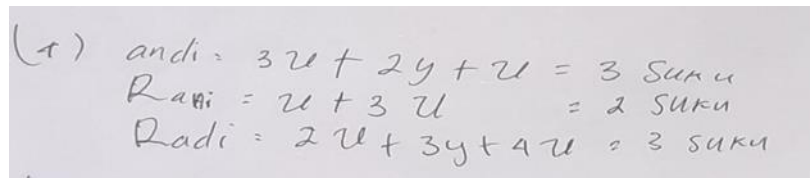 (1) andi = 3x + 2y + x = 3 suku
Rani = x + 3x = 2 suku
Radi = 2x + 3y + 4x = 3 suku